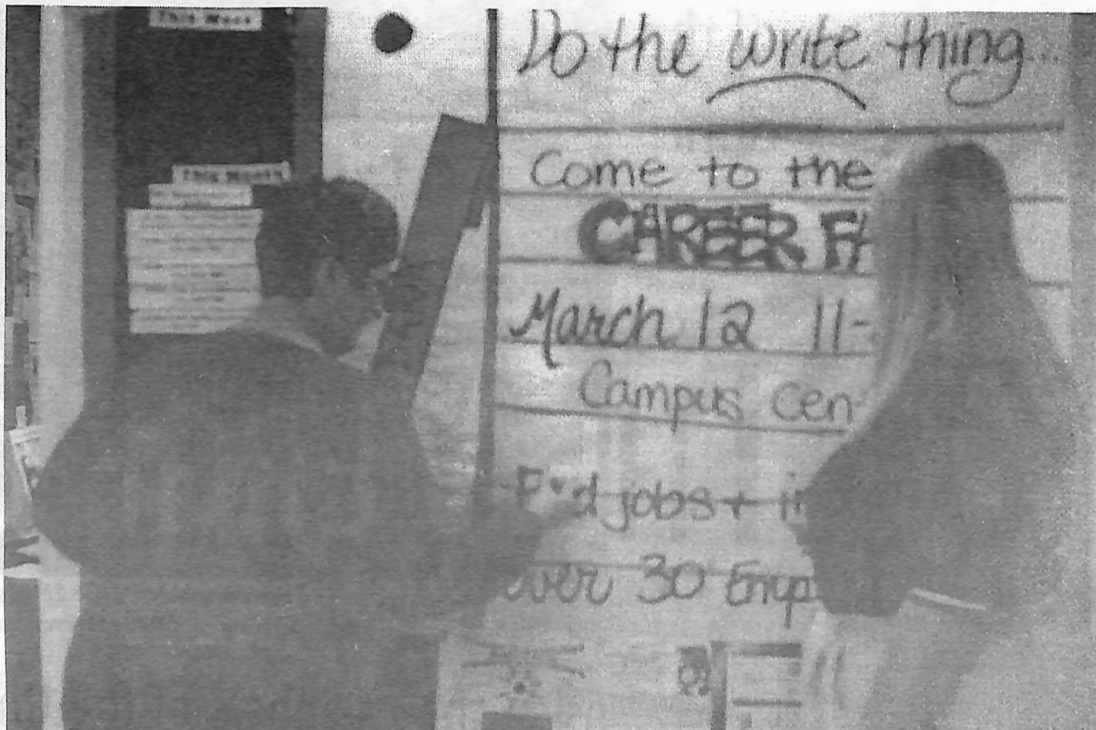 This Week
This Week
Do the write thing...
Come to the
CAREER FA
March 12 11-
Campus cen
jobs + in
over 30 Emp